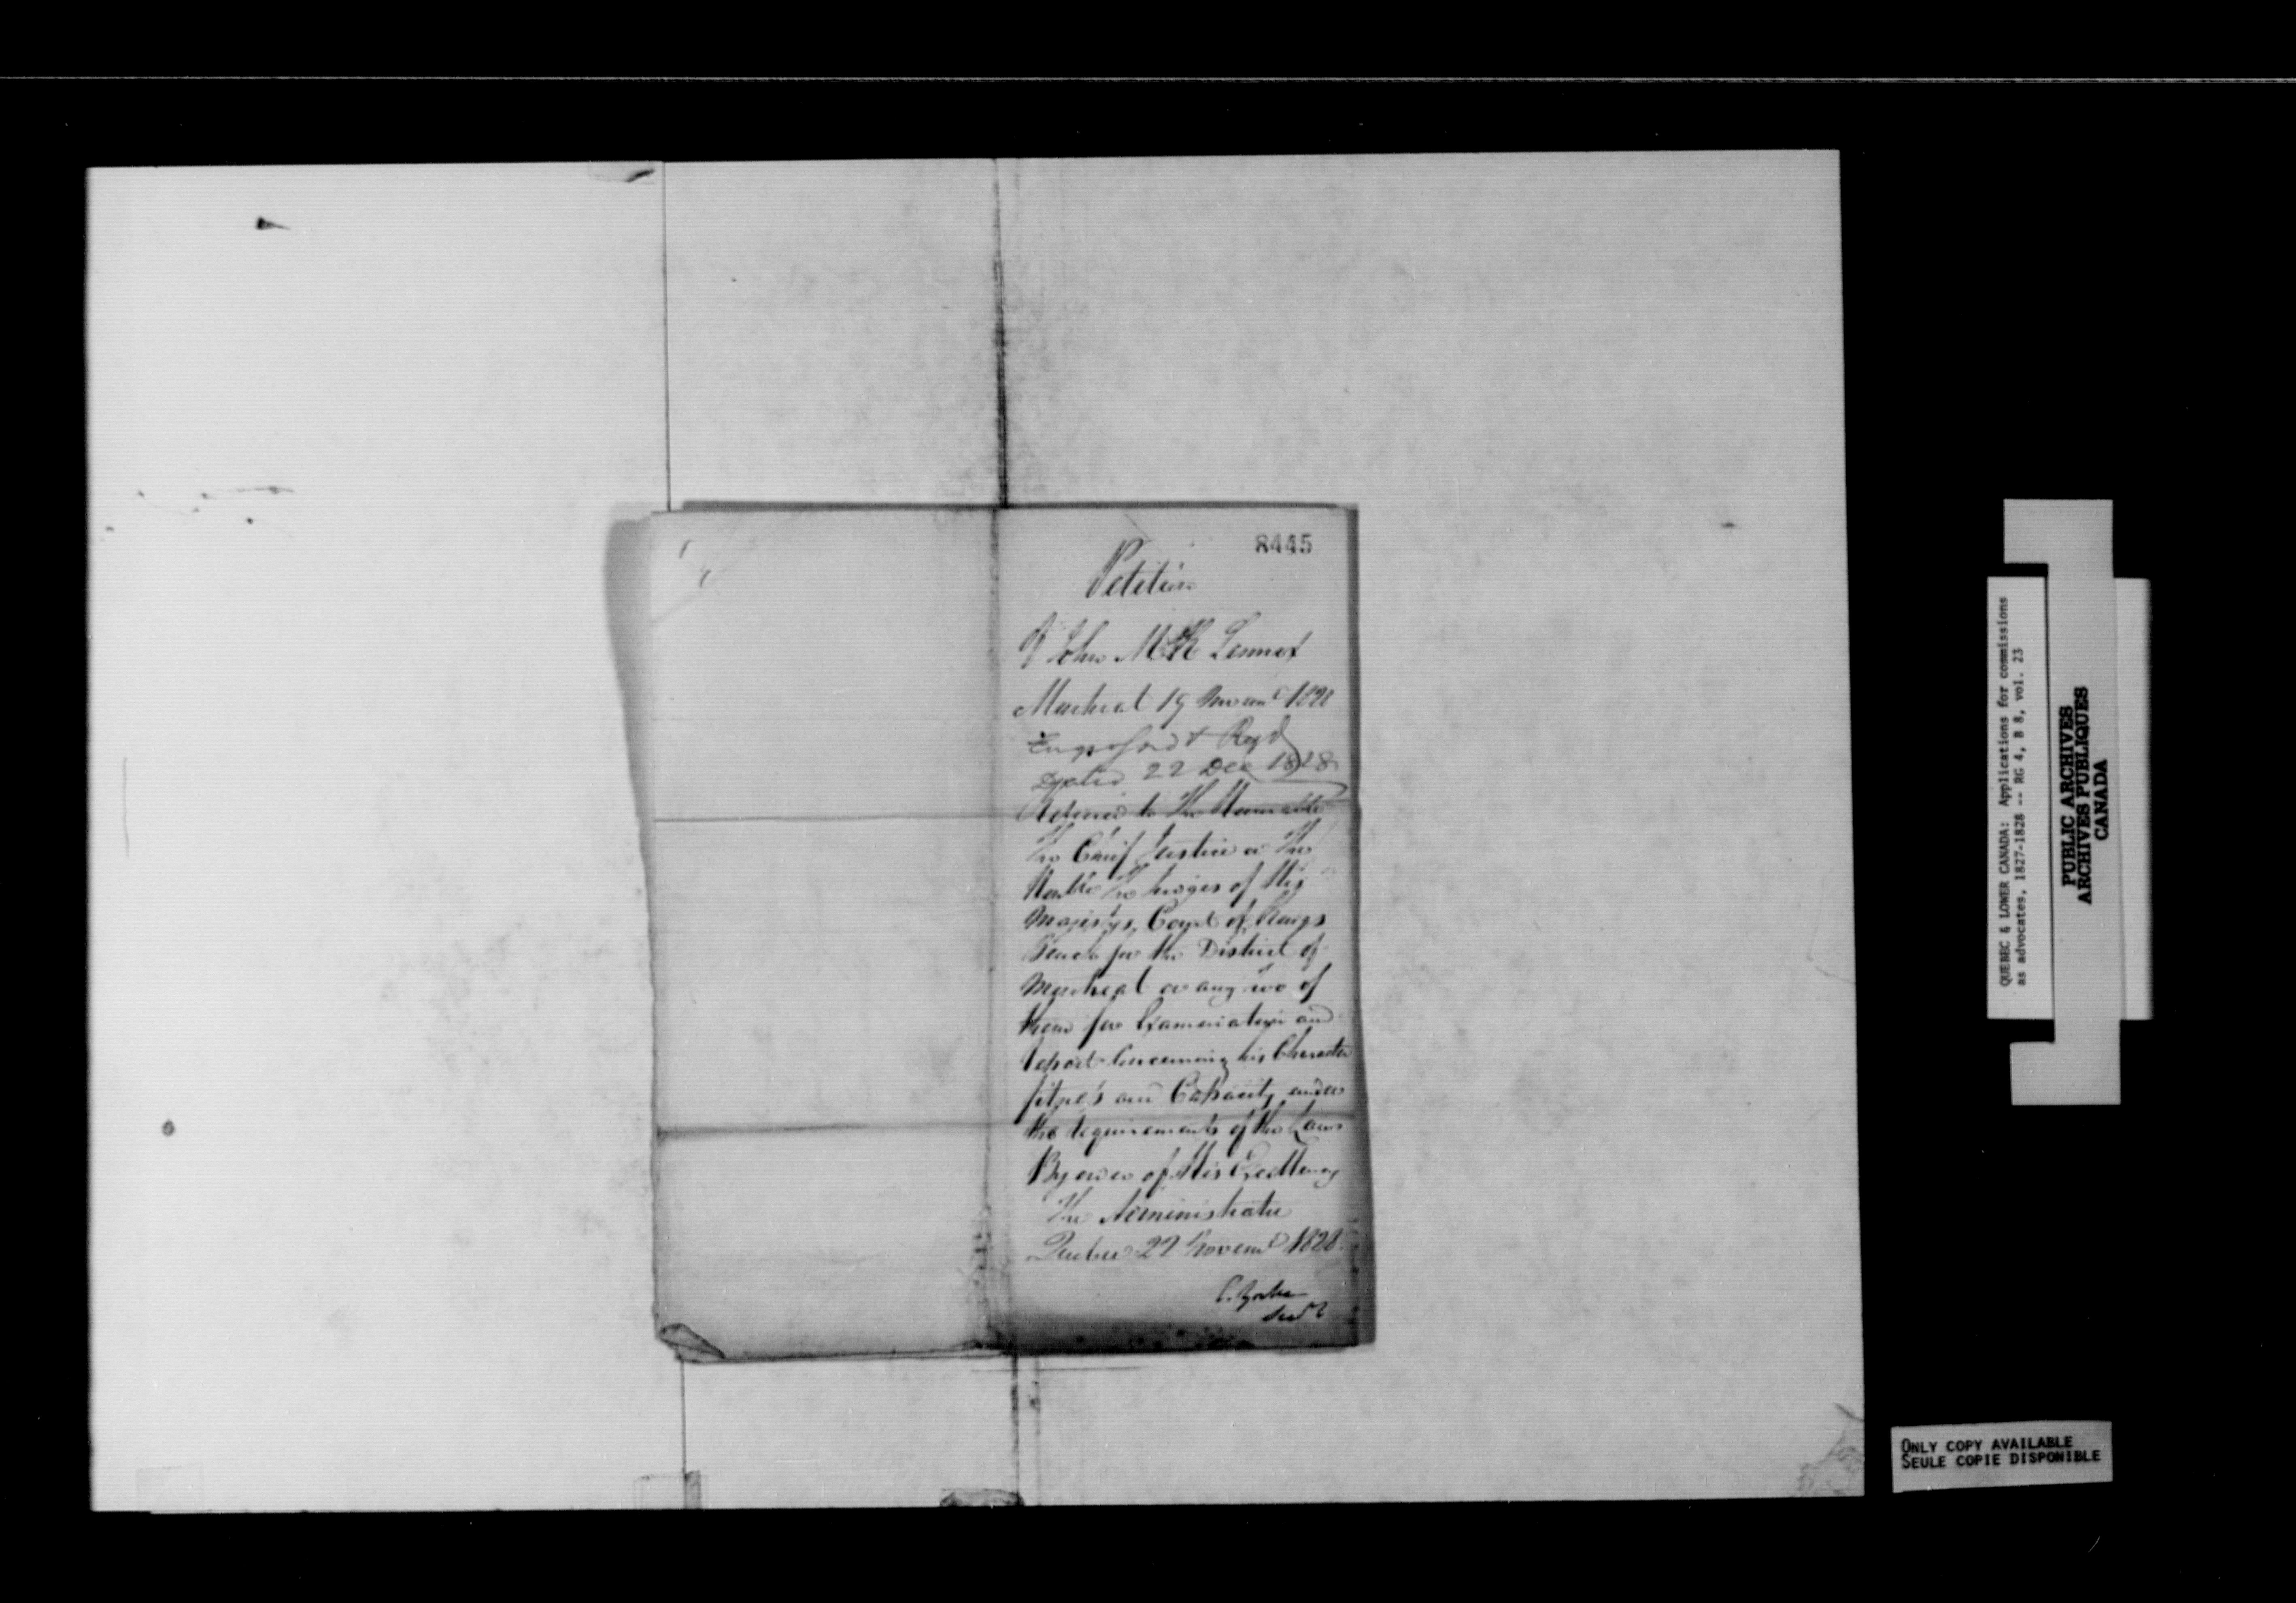 8445
Petition
of John McK Lennox
Montreal 19 Novemr 1828
Engrossed & Regd
Dated 22 Dec 1828
Referred to The Honorable
The Chief Justice or The
Honble The Judges of His
Majestys Court of Kings
Bench for the District of
Montreal or any two of
them for Examination and
report concerning his Character
fitness and Capacity under
the requirements of the Laws
By order of His Excellency
The Administrator
Quebec 22 Novemr 1828.
C. Yorke
Secy
QUEBEC & LOWER CANADA: Applications for commissions
as advocates, 1827-1828 -- RG 4, B 8, vol. 23
PUBLIC ARCHIVES
ARCHIVES PUBLIQUES
CANADA
ONLY COPY AVAILABLE
SEULE COPIE DISPONIBLE